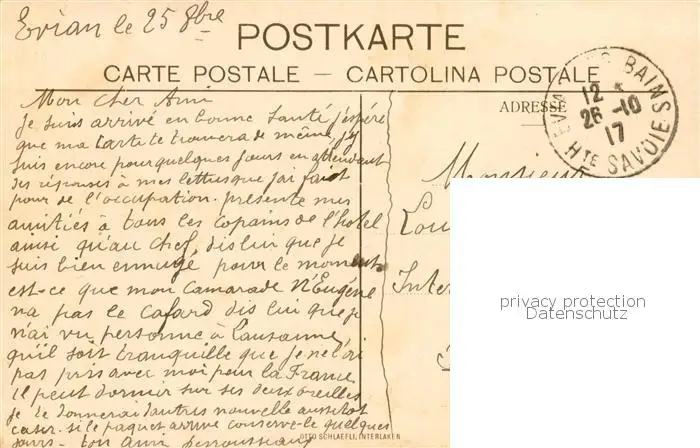 Evian le 25 8bre
POSTKARTE
CARTE POSTALE — CARTOLINA POSTALE
ADRESSE
EVIAN LES BAINS
12 *
26 -10
17
Hte SAVOIE
Mon cher Ami
Je suis arrivé en bonne santé j'espére
que ma carte te trouvera de même, j'y
suis encore pour quelques jours en attendant
des réponses à mes lettres que j'ai fait
pour de l'occupation. presente mes
amitiés à tous les copains de l'hotel
ainsi qu'au chef, dis lui que je
suis bien ennuyé pour le moment
est-ce que mon camarade Eugene
n'a pas le cafard dis lui que je
n'ai vu personne à Lausanne
qu'il soit tranquille que je ne l'ai
pas pris avec moi pour la France
il peut dormir sur ses deux oreilles
je te donnerai d'autres nouvelle aussitot
caser. si le paquet arrive conserve-le quelques
jours - ton ami
Monsieur
Lou
Inter
privacy protection
Datenschutz
OTTO SCHLAEFLI, INTERLAKEN